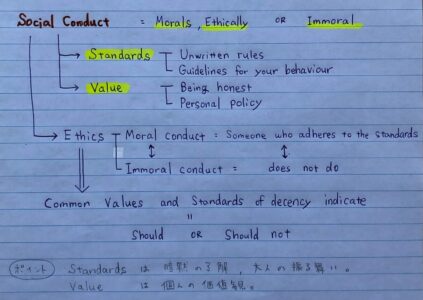 Social Conduct = Morals, Ethically OR Immoral
Standards Unwritten rules
Guidelines for your behaviour
Value Being honest
Personal policy
Ethics Moral conduct = Someone who adheres to the standards
Immoral conduct = does not do
Common Values and Standards of decency indicate
=
Should OR Should not
ポイント Standards は 暗黙の了解, 大人の振る舞い。
Value は 個人の価値観。